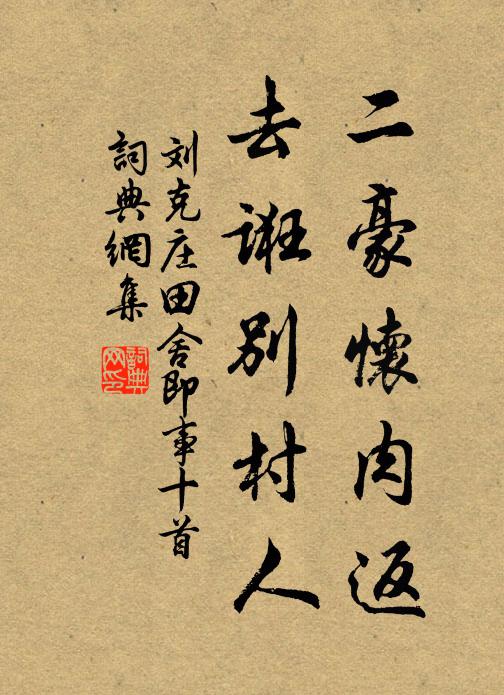 二豪懷肉返
去誑別村人
刘克庄田舍即事十首
詞典網集
詞典网印